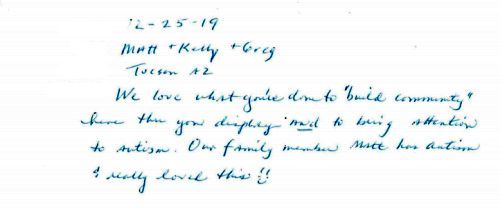 12-25-19
Matt + Kelly + Greg
Tucson AZ
We love what you've done to "build community"
here thru you display and to bring attention
to autism. Our family member Matt has autism
& really loved this!!